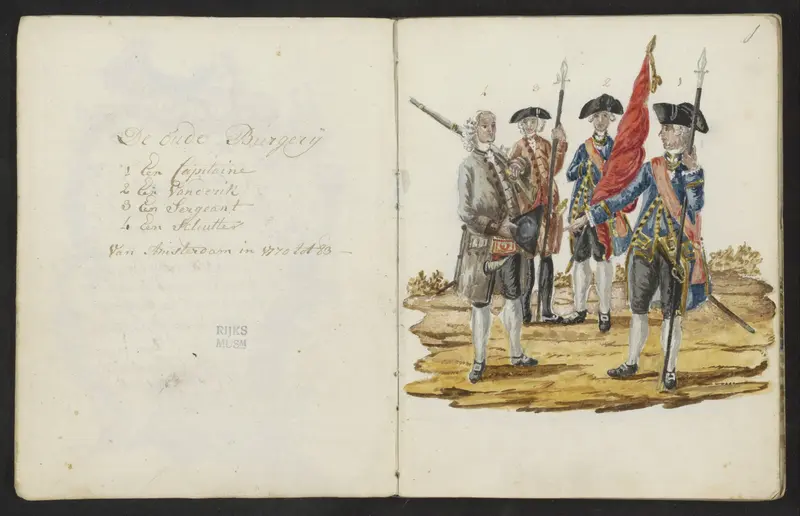 De oude Burgery
1 Een Capitaine
2 Een Vandrik
3 Een Sergeant
4 Een Schutter
Van Amsterdam in 1770 tot 83
RIJKS
MUSM
4 3 2 1
1